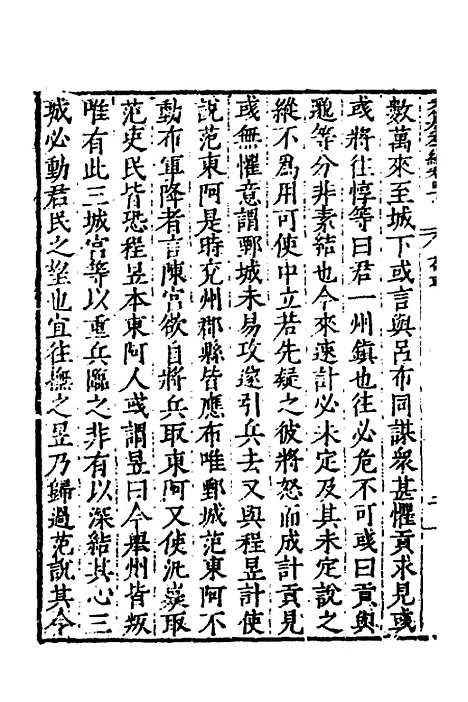 數萬來至城下或言與呂布同謀衆甚懼貢求見彧
彧將往惇等曰君一州鎮也往必危不可彧曰貢與
邈等分非素結也今來速計必未定及其未定說之
縱不爲用可使中立若先疑之彼將怒而成計貢見
彧無懼意謂鄄城未易攻遂引兵去又與程昱計使
說范東阿是時兗州郡縣皆應布唯鄄城范東阿不
動布軍降者言陳宮欲自將兵取東阿又使汎嶷取
范吏民皆恐程昱本東阿人彧謂昱曰今舉州皆叛
唯有此三城宮等以重兵臨之非有以深結其心三
城必動君民之望也宜往撫之昱乃歸過范說其令